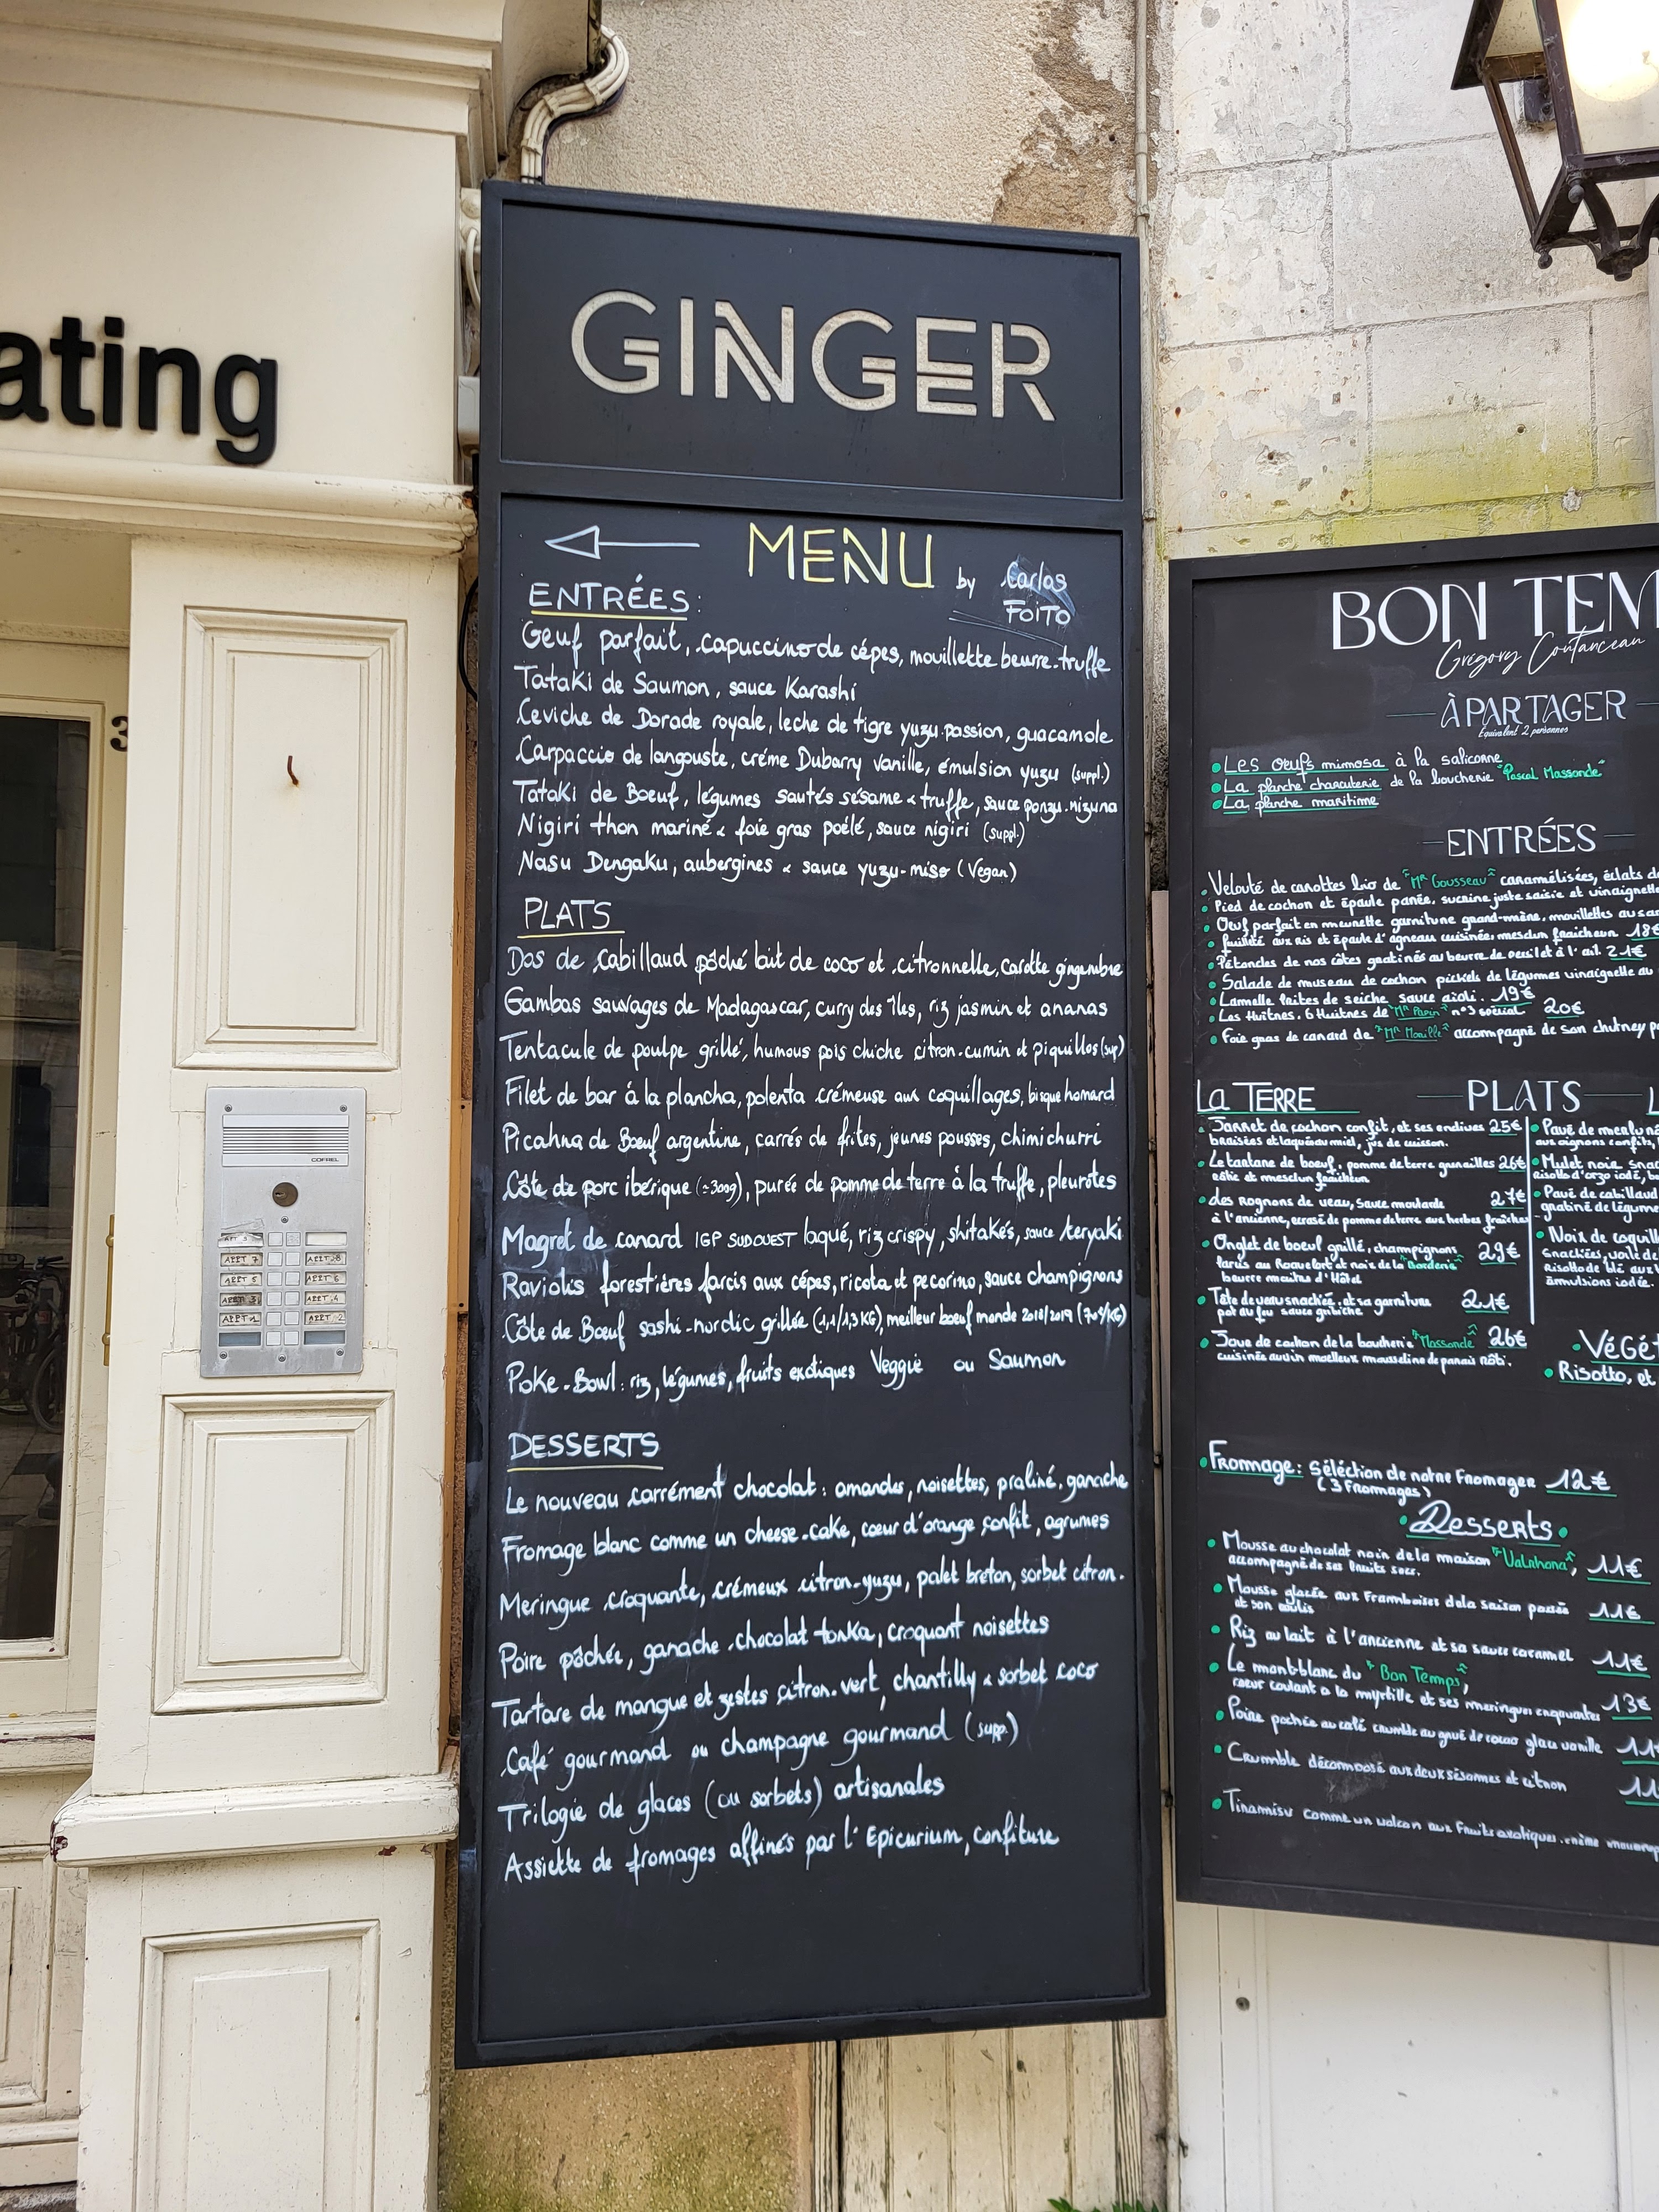 ating
3
COFREL
APPT 7
APPT 8
APPT 5
APPT 6
APPT 3
APPT 4
APPT 1
APPT 2
GINGER
MENU
by Carlos
FOITO
ENTRÉES:
Oeuf parfait, capuccino de cépes, mouillette beurre-truffe
Tataki de Saumon, sauce Karashi
Ceviche de Dorade royale, leche de tigre yuzu-passion, guacamole
Carpaccio de langouste, créme Dubarry vanille, émulsion yuzu (suppl.)
Tataki de Boeuf, légumes sautés sésame & truffe, sauce ponzu-mizuna
Nigiri thon mariné & foie gras poélé, sauce nigiri (suppl.)
Nasu Dengaku, aubergines & sauce yuzu-miso (Vegan)
PLATS
Dos de cabillaud pôché lait de coco et citronnelle, carotte gingembre
Gambas sauvages de Madagascar, curry des îles, riz jasmin et ananas
Tentacule de poulpe grillé, humous pois chiche citron-cumin et piquillos (sup)
Filet de bar à la plancha, polenta crémeuse aux coquillages, bisque homard
Picahna de Boeuf argentine, carrés de frites, jeunes pousses, chimichurri
Côte de porc ibérique (±300g), purée de pomme de terre à la truffe, pleurotes
Magret de canard IGP SUDOUEST laqué, riz crispy, shitakés, sauce teryaki
Raviolis forestiéres farcis aux cépes, ricota et pecorino, sauce champignons
Côte de Boeuf sashi-nordic grillée (1,1/1,3KG), meilleur boeuf monde 2018/2019 (70€/KG)
Poke-Bowl: riz, légumes, fruits exotiques Veggie ou Saumon
DESSERTS
Le nouveau carrément chocolat: amandes, noisettes, praliné, ganache
Fromage blanc comme un cheese-cake, coeur d'orange confit, agrumes
Meringue croquante, crémeux citron-yuzu, palet breton, sorbet citron.
Poire pôchée, ganache chocolat tonka, croquant noisettes
Tartare de mangue et zestes citron-vert, chantilly & sorbet coco
Café gourmand ou champagne gourmand (supp.)
Trilogie de glaces (ou sorbets) artisanales
Assiette de fromages affinés par l'Epicurium, confiture
BON TEM
Grégory Coutanceau
À PARTAGER
Equivalent 2 personnes
Les œufs mimosa à la salicorne
La planche charcuterie de la boucherie "Pascal Massonde"
La planche maritime
ENTRÉES
Velouté de carottes bio de "Mr Gousseau" caramélisées, éclats de
Pied de cochon et épaule panée, sucrine juste saisie et vinaigrette
Œuf parfait en meurette garniture grand-mère, mouillettes au sar
feuilleté aux ris et épaule d'agneau cuisinée, mesclun fraicheur 18€
Pétoncles de nos côtes gratinés au beurre de persil et à l'ail 21€
Salade de museau de cochon pickels de légumes vinaigrette au
Lamelle frites de seiche sauce aïoli. 19€
Les Huîtres, 6 Huitres de "Mr Papin" n°3 spécial 20€
Foie gras de canard de "Mr Morille" accompagné de son chutney p
PLATS
La TERRE
Jarret de cochon confit, et ses endives 25€
braisées et laqué au miel, jus de cuisson.
Le tartare de boeuf, pomme de terre grenailles 26€
rôtie et mesclun fraicheur
Les Rognons de veau, Sauce moutarde 27€
à l'ancienne, écrasé de pomme de terre aux herbes fraîches
Onglet de boeuf grillé, champignons 29€
farcis au Roquefort et noix de la "Borderie"
beurre maitre d'Hôtel
Tête de veau snackée, et sa garniture 21€
pot au feu sauce gribiche
Joue de cochon de la boucherie "Massonde" 26€
cuisinée au vin moelleux mousseline de panais rôti.
Pavé de merlu
aux oignons confits,
Mulet noir snac
Risotto d'orzo iodé, b
Pavé de cabillaud
gratiné de légume
Noix de coquill
Snackées, voile de
Risotto de blé aux
émulsions iodée.
Végét
Risotto, et
Fromage: Séléction de notre Fromager 12€
(3 Fromages)
Desserts
Mousse au chocolat noir de la maison "Valrhona", 11€
accompagné de ses fruits secs.
Mousse glacée aux Framboises de la saison passée 11€
et son coulis
Riz au lait à l'ancienne et sa sauce caramel 11€
Le mont-blanc du "Bon Temps",
coeur coulant a la myrtille et ses meringues croquantes 13€
Poire pochée au café crumble au grué de cacao glace vanille 11
Crumble décomposé aux deux sésames et citron 11
Tiramisu comme un volcan aux Fruits exotiques, crème